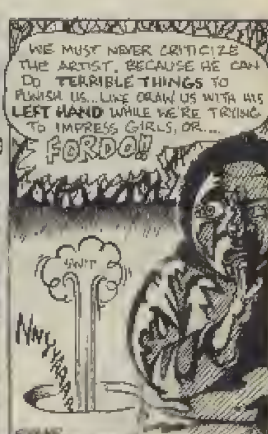 WE MUST NEVER CRITICIZE
THE ARTIST, BECAUSE HE CAN
DO TERRIBLE THINGS TO
PUNISH US... LIKE DRAW US WITH HIS
LEFT HAND WHILE WE'RE TRYING
TO IMPRESS GIRLS, OR...
FORDO!!